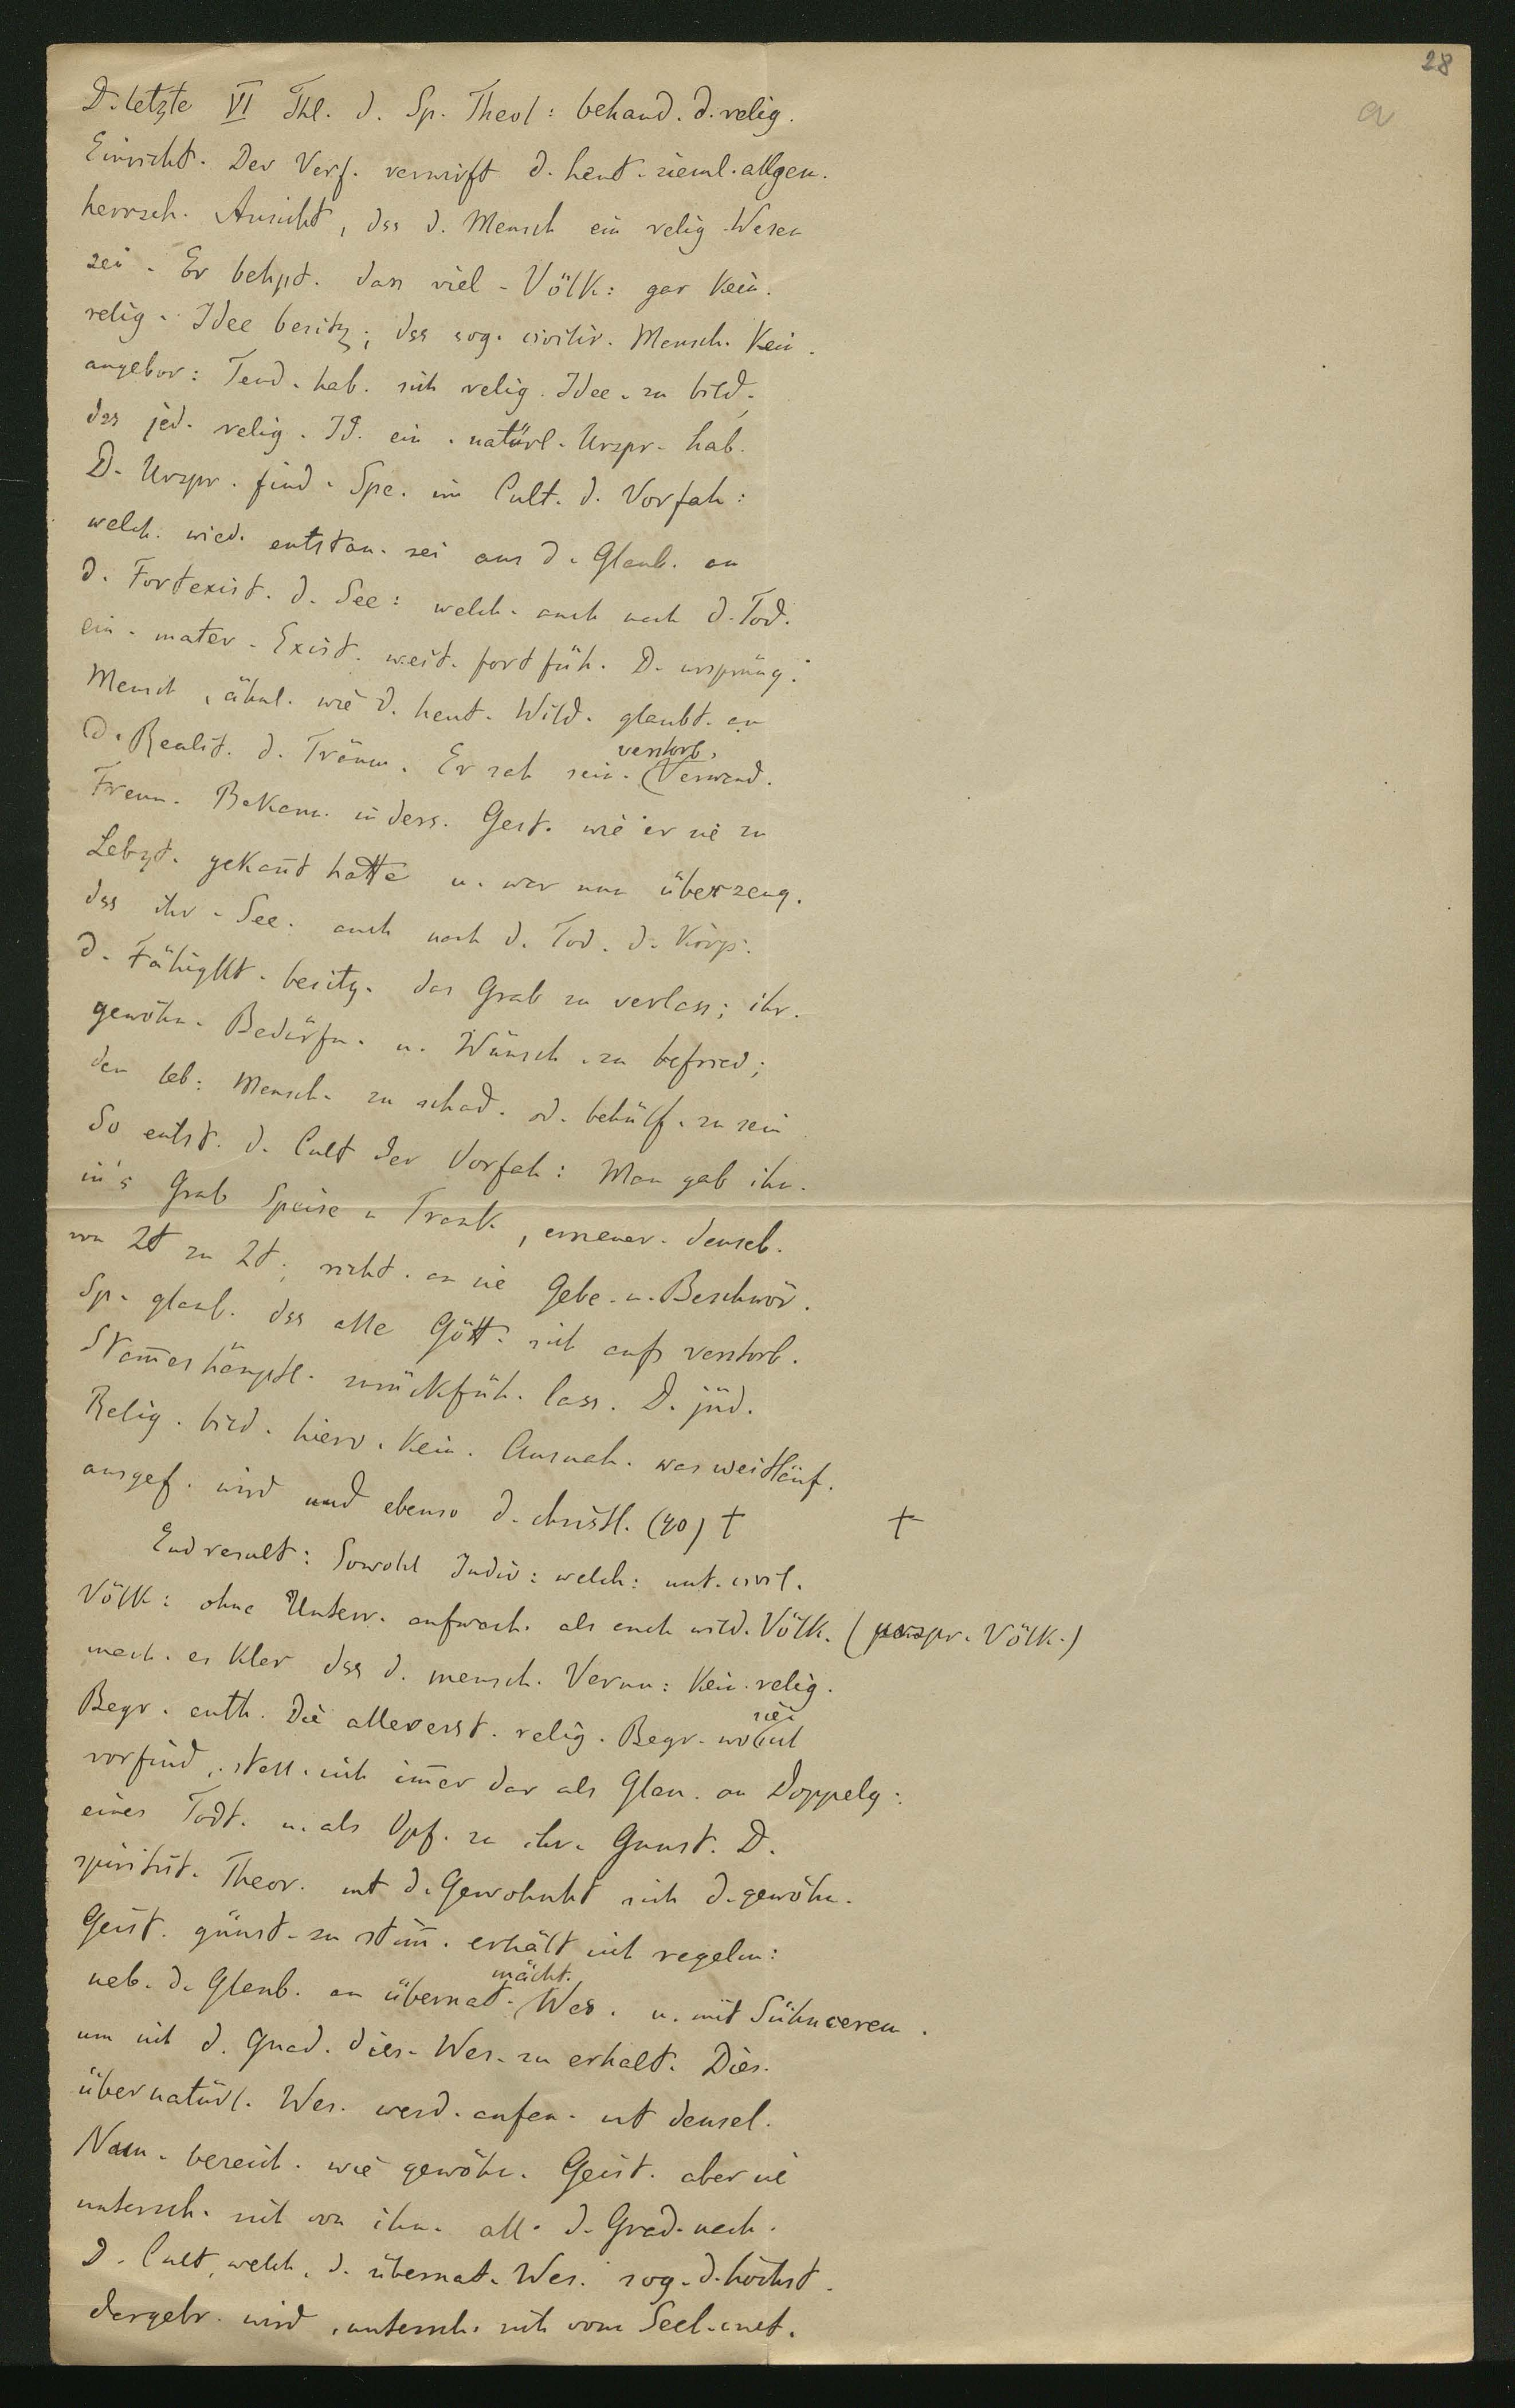 28
a
D. letzte VI Thl. d. Sp. Theol: behand. d. relig.
Einricht. Der Verf. verwirft d. heut. zieml. allgem.
herrsch. Ansicht, dss d. Mensch ein relig. Wesen
sei. Er behpt. dass viel. Völk: gar kein.
relig. Idee besitz; dss sog. civilis. Mensch. kein.
angebor: Tend. hab. sich relig. Idee. zu bild.,
dss jed. relig. Id. ein. natürl. Urspr. hab.
D. Urspr. find. Spe. im Cult. d. Vorfah:
welch. wied. entstan. sei aus d. Glaub. an
d. Fortexist. d. See: welch. auch nach d. Tod.
ein. mater. Exist. weit. fortfüh. D. ursprüng.
Mensch, ähnl. wie d. heut. Wild. glaubt. an
d. Realit. d. Träum. Er sah sein. verstorb. Verwand.
Freun. Bekann. in ders. Gest. wie er sie zu
Lebzt. gekannt hatte u. war nun überzeug.
dss ihr. See. auch nach d. Tod. d. Körp.
d. Fähigkt. besitz. das Grab zu verlass; ihr.
gewöhn. Bedürfn. u. Wünsch. zu befried;
den leb: Mensch. zu schad. od. behülf. zu sein
So entst. d. Cult der Vorfah: Man gab ihn.
in's Grab Speise u Trank, erneuer. densel.
von Zt zu Zt; richt. an sie Gebe. u. Beschwör.
Sp. glaub. dss alle Gött. sich aufs verstorb.
Stam̄eshäuptl. zurückfüh. lass. D. jüd.
Relig. bild. hierv. kein. Ausnah. was weitläuf.
ausgef. wird und ebenso d. christl. (40) † †
Endresult: Sowohl Indiv: welch: unt. civil.
Völk: ohne Unterr. aufwach. als auch wild. Völk. (urspr. Völk.)
mach. es klar dss d. mensch. Vernu: kein. relig.
Begr. enth. Die allererst. relig. Begr. wo sie sich
vorfind., stell. sich im̄er dar als Glau. an Doppelg:
eines Todt. u. als Opf. zu ihr. Gunst. D.
spiritist. Theor. mt d. Gewohnht sich d. gewöhn.
Geist. günst. zu stim̄. erhält sich regelm:
neb. d. Glaub. an übernat. mächt. Wes. u. mit Sühncerem.
um sich d. Gnad. dies. Wes. zu erhalt. Dies.
übernatürl. Wes. werd. anfan. mt densel.
Nam. bezeich. wie gewöhn. Geist. aber sie
untersch. sich von ihn. all. d. Grad. nach.
D. Cult, welch. d. übernat. Wes. sog. d. höchst.
dargebr. wird, untersch. sich vom Seel. cult.